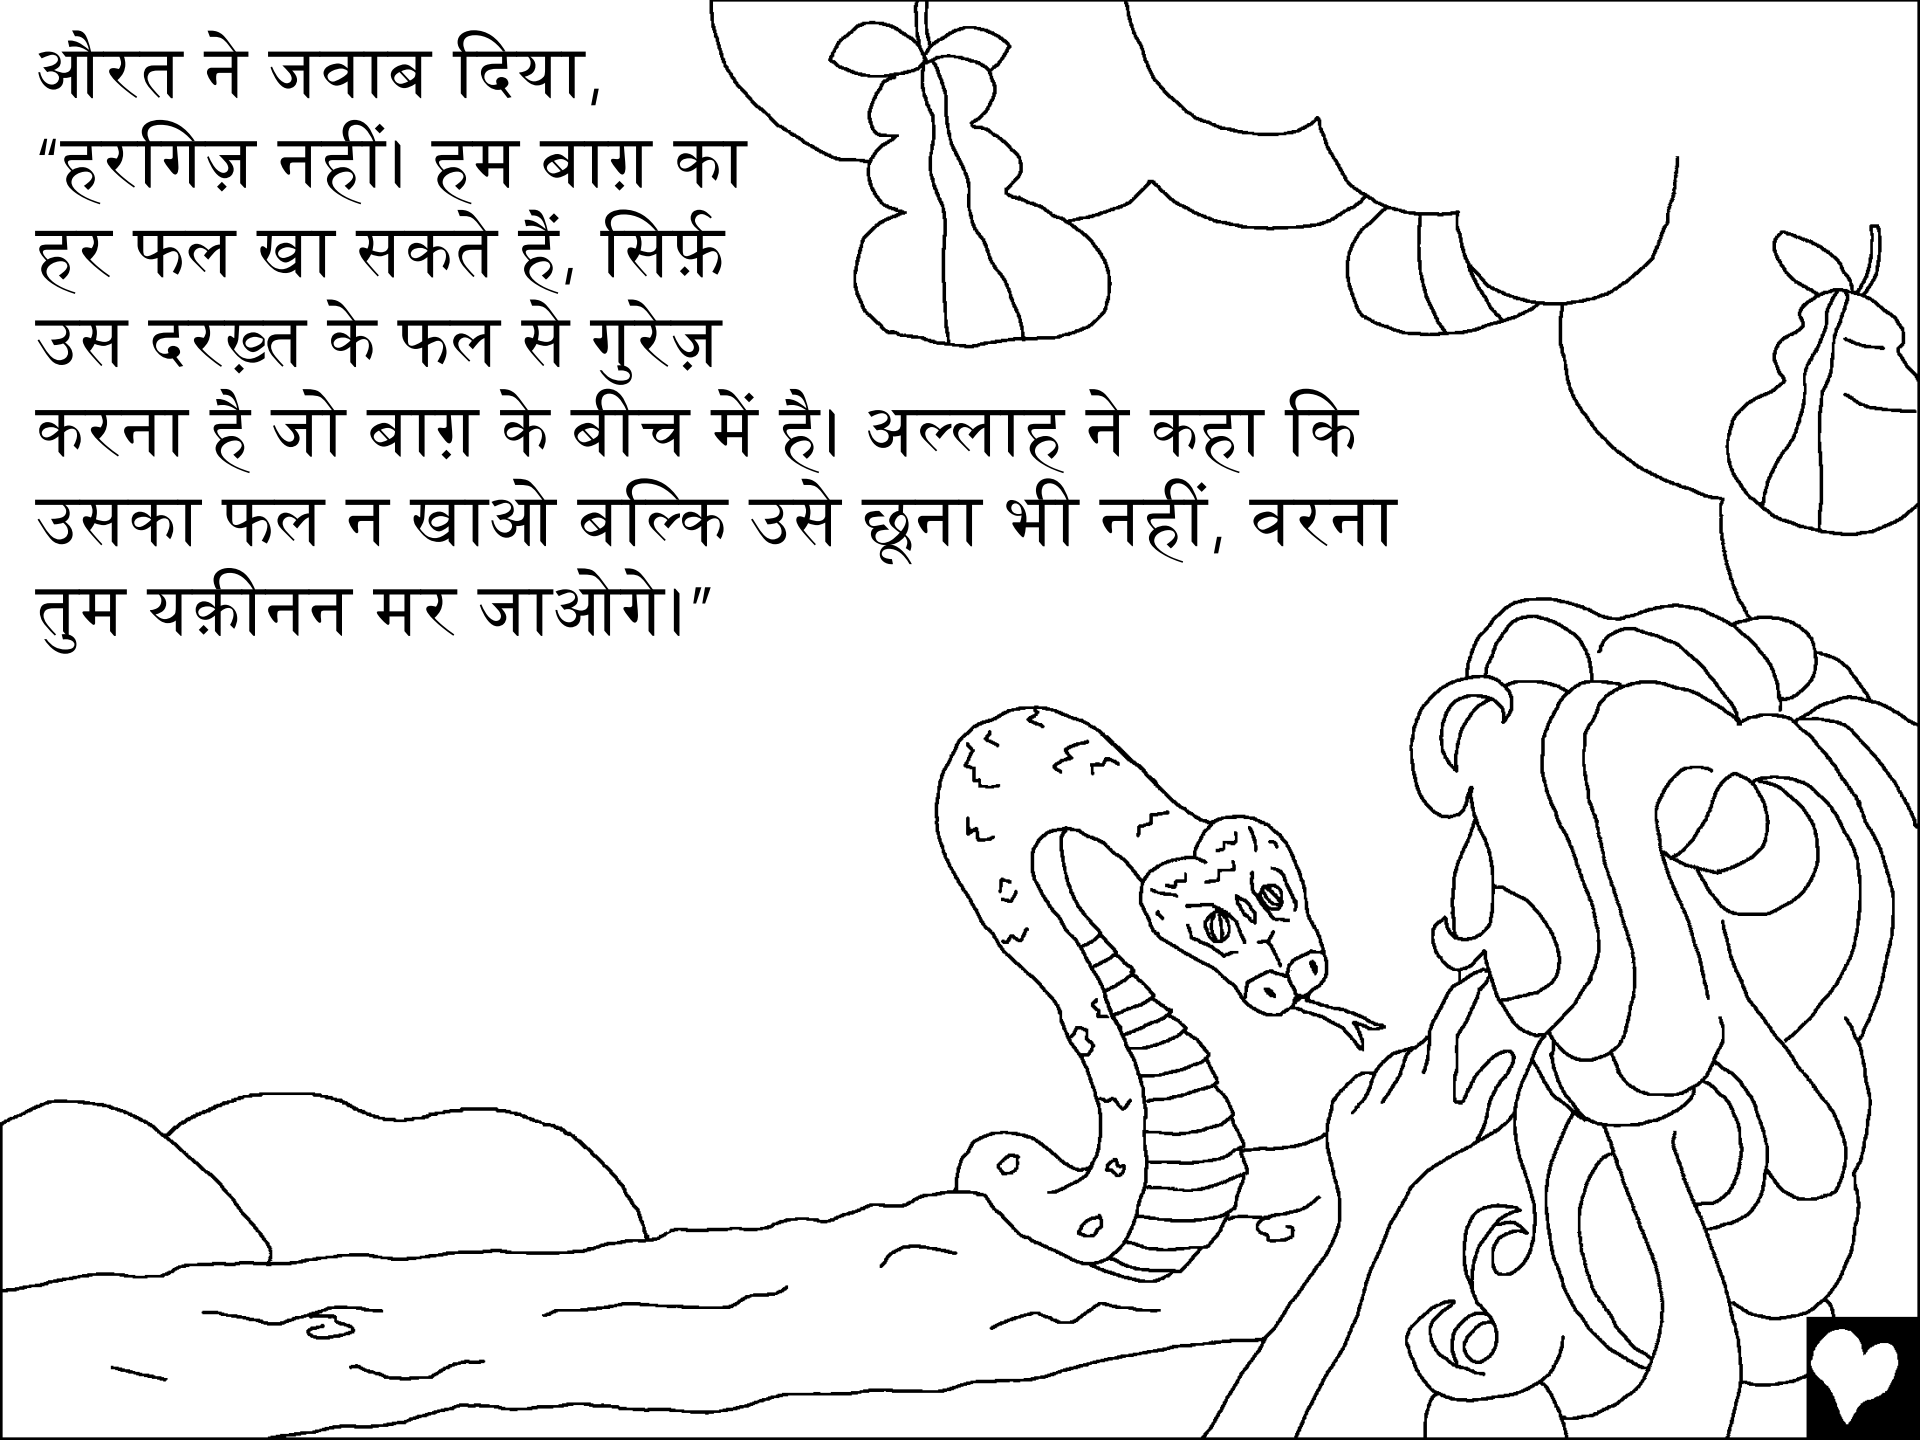 औरत ने जवाब दिया,
“हरगिज़ नहीं। हम बाग़ का
हर फल खा सकते हैं, सिर्फ़
उस दरख़्त के फल से गुरेज़
करना है जो बाग़ के बीच में है। अल्लाह ने कहा कि
उसका फल न खाओ बल्कि उसे छूना भी नहीं, वरना
तुम यक़ीनन मर जाओगे।”